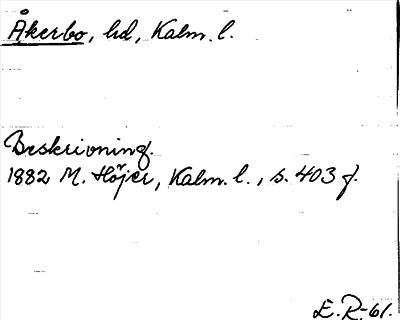 Åkerbo, hd, Kalm. l.
Beskrivning.
1882 M. Höjer, Kalm. l., s. 403 f.
E. R-61.